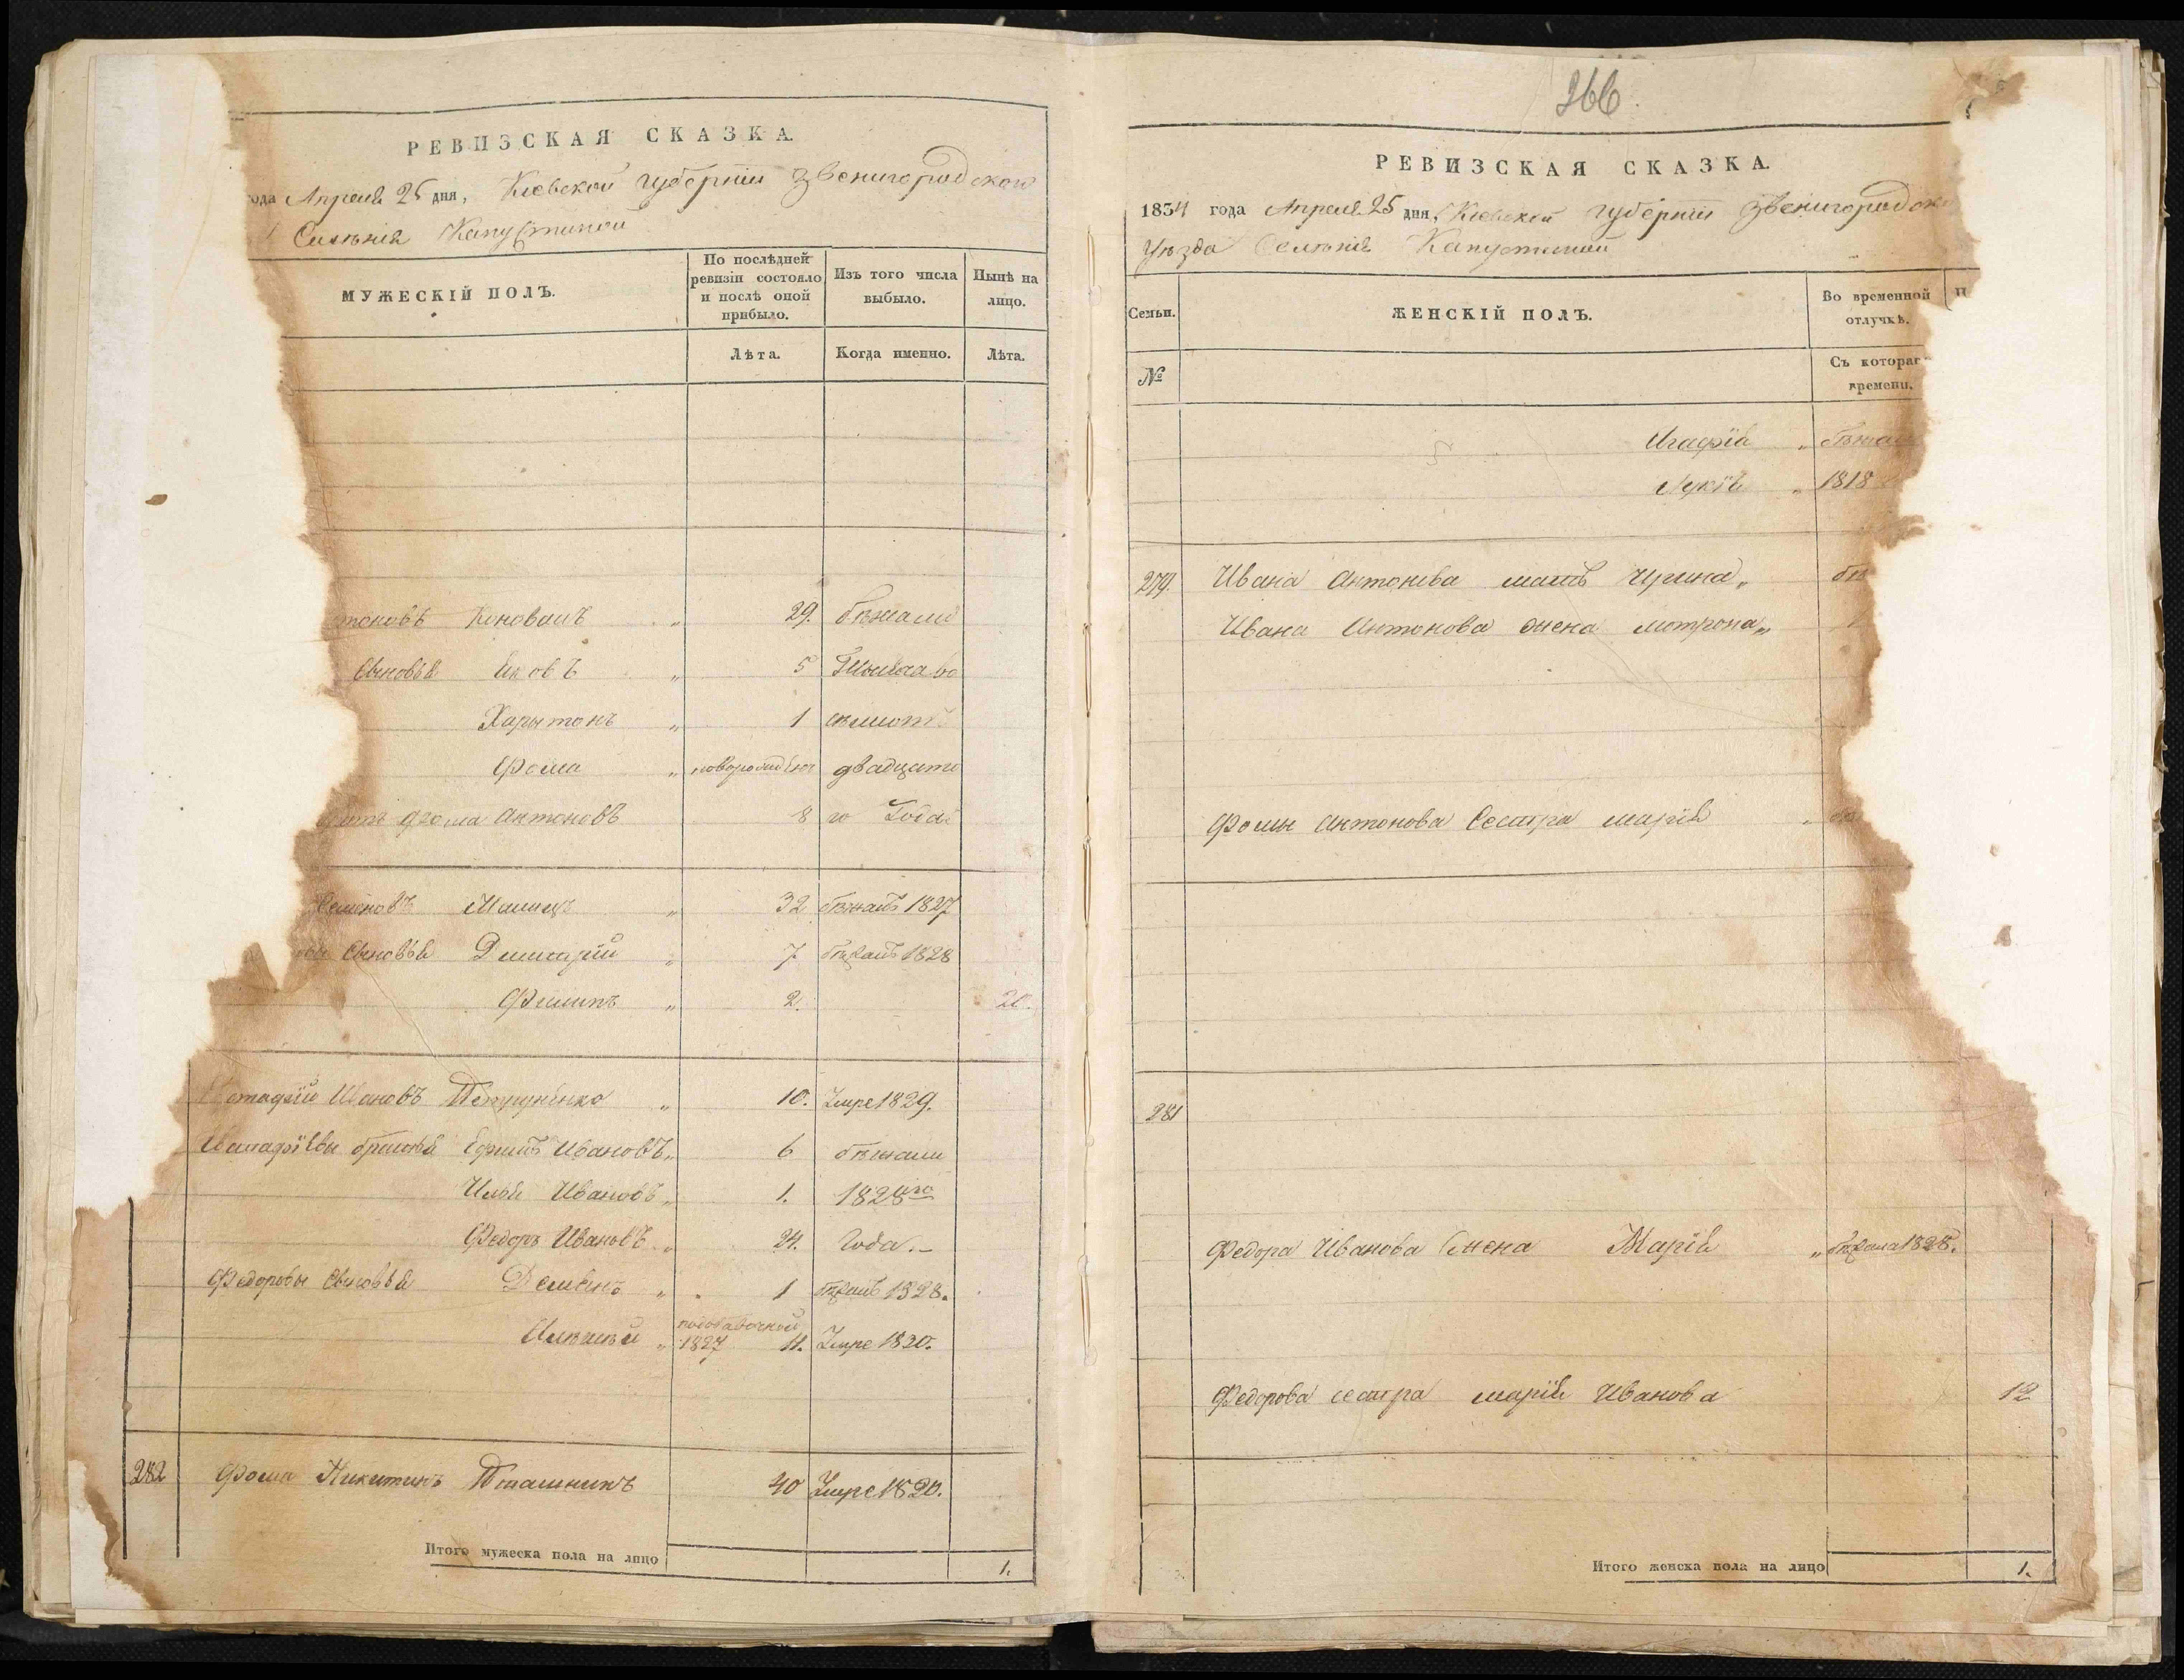 РЕВИЗСКАЯ СКАЗКА.
ода Апреля 25 дня, Киевской губернiи Звенигородской
Селѣнiя Капустиной
МУЖЕСКІЙ ПОЛЪ.
По послѣдней ревизіи состояло и послѣ оной прибыло.
Изъ того числа выбыло.
Нынѣ на лицо.
Лѣта.
Когда именно.
Лѣта.
тоновъ Коновалъ " 29. бѣжали
Сыновья Яковъ " 5
Харытонъ " 1
Фома " двадцато
Фома Антоновъ 8 го Года
Семеновъ 32 бѣжалъ 1827
Сыновья Дмитрій " 7 бѣжалъ 1828
Филипъ " 2. 20.
Ивановъ 10. Умре 1829.
братья Ефимъ Ивановъ " 6 бѣжали
Илья Ивановъ " 1. 1828го
Федоръ Ивановъ " 24. Года.
Федоровы Сыновья Демьянъ " 1 бѣжалъ 1828.
1827 11. Умре 1830.
282 Фома Никитинъ 40 Умре 1820.
Итого мужеска пола на лицо 1.
366
РЕВИЗСКАЯ СКАЗКА.
1834 года Апреля 25 дня, Киевской губернiи Звенигородско
Уѣзда Селѣнiя Капустиной
Семьи.
ЖЕНСКІЙ ПОЛЪ.
Во временной отлучкѣ.
№
Съ котораг времени.
Агафія " бѣжа
" 1818
279. Ивана Антонова мать Ирина " бѣ
Ивана Антонова жена Мотрона "
Фомы Антонова Сестра Марія "
281
Федора Иванова Жена Марія " бѣжала 1828.
Федорова сестра Марія Иванова 12
Итого женска пола на лицо 1.